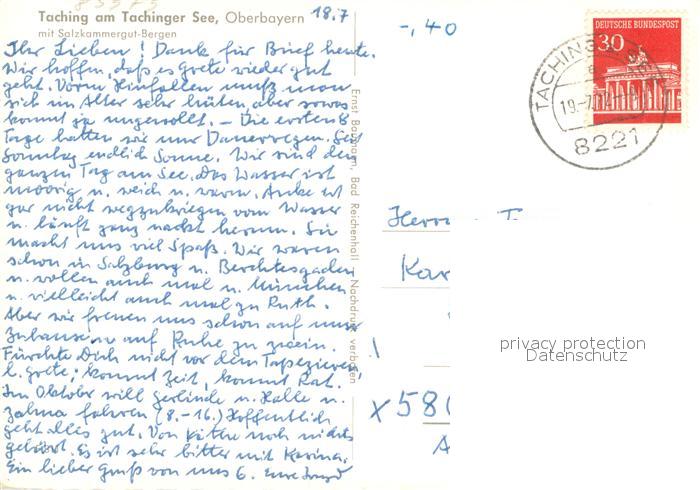 Taching am Tachinger See, Oberbayern
mit Salzkammergut-Bergen
18.7
-,40
Ihr Lieben! Dank für Brief heute.
Wir hoffen, daß es Grete wieder gut
geht. Vorm Hinfallen muß man
sich im Alter sehr hüten, aber sowas
kommt ja ungewollt. – Die ersten 8
Tage hatten wir nur Dauerregen. Seit
Sonntag endlich Sonne. Wir sind den
ganzen Tag am See. Das Wasser ist
moorig u. weich u. warm. Anke ist
gar nicht wegzukriegen vom Wasser
u. läuft ganz nackt herum. Sie
macht uns viel Spaß. Wir waren
schon in Salzburg u. Berchtesgaden
u. wollen auch mal n. München
u. vielleicht auch mal zu Ruth.
Aber wir freuen uns schon auf unser
Zuhause, auf Ruhe zu zweien.
Fürchte Dich nicht vor dem Tapezieren
l. Grete; kommt Zeit, kommt Rat.
Im Oktober will Gerlinde n. Halle u.
fahren (8.-16.) Hoffentlich
geht alles gut. Von Käthe noch nichts
gehört. Es ist sehr bitter mit Karina.
Ein lieber Gruß von uns 6. Eure
Ernst Baumann, Bad Reichenhall Nachdruck verboten
DEUTSCHE BUNDESPOST
30
TACHING A. SEE
a
19.-7.
8221
Herrn
Kar
x 580
A
privacy protection
Datenschutz